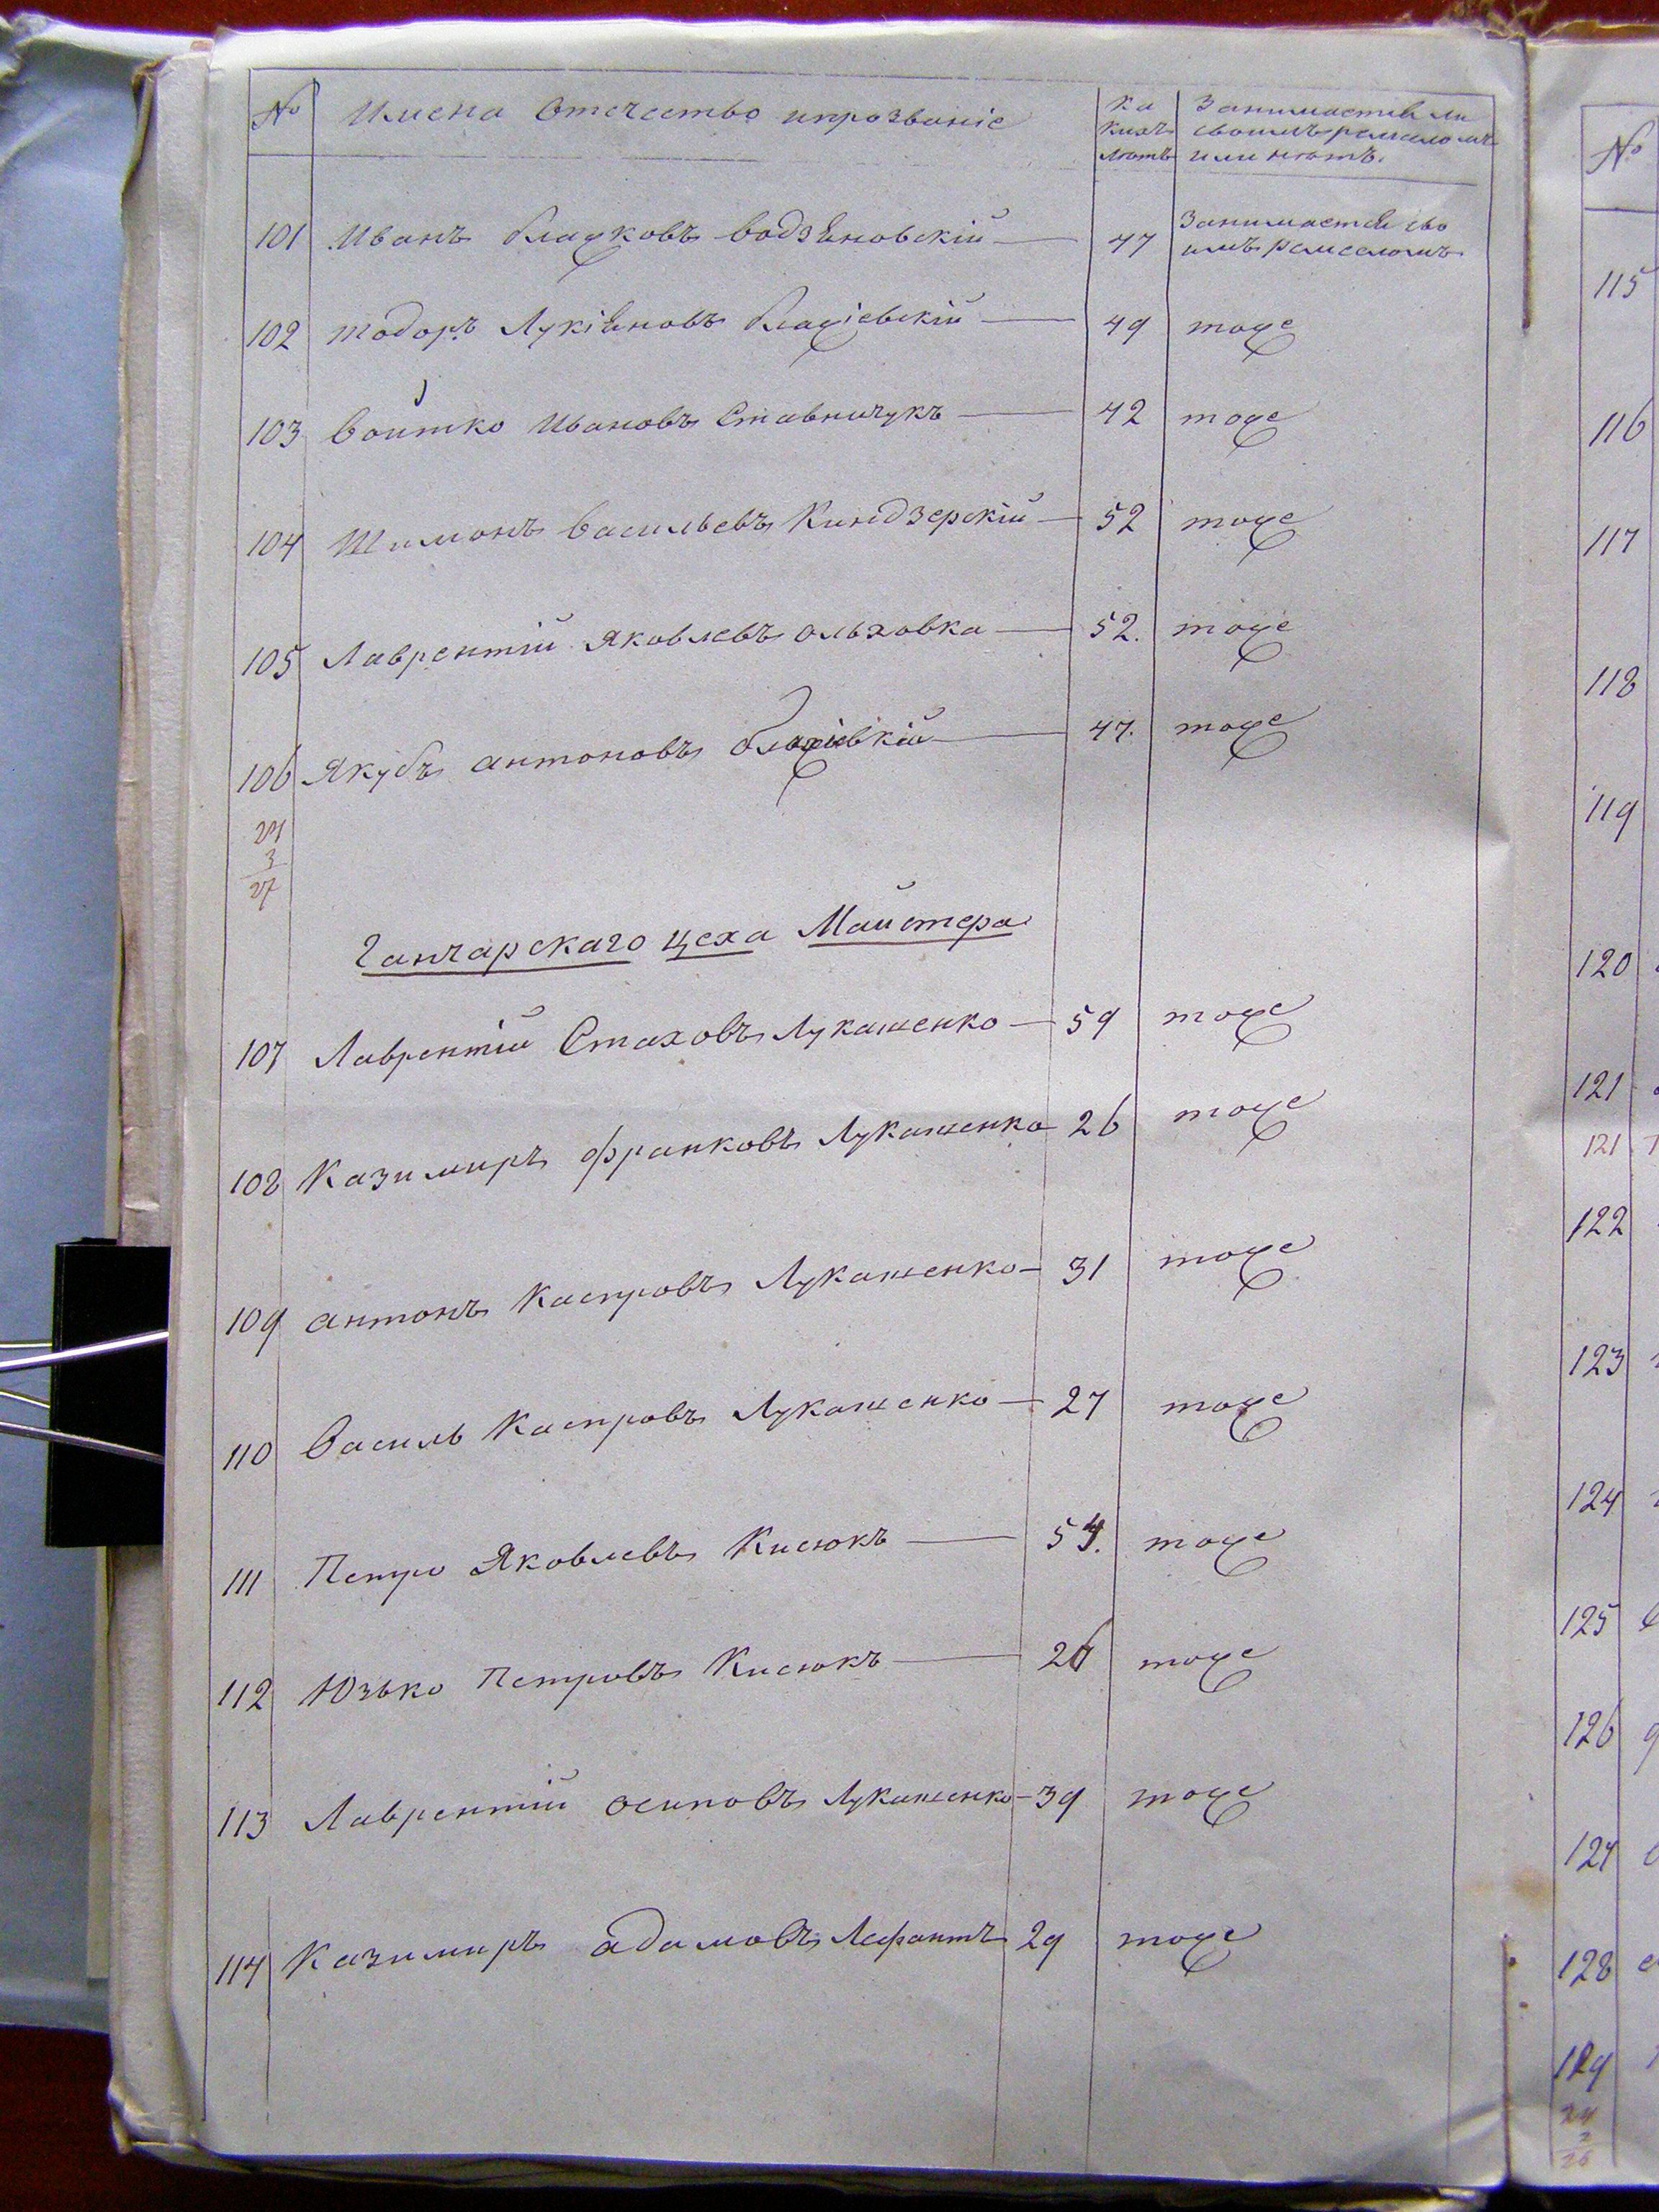 № Имена Отечество ипрозваніе Ка кихъ лѣтъ Занимается ли своимъ ремесломъ или нѣтъ.
101 Иванъ Влажковъ Водзяновскій 47 Занимается сво имъ ремесломъ
102 Тодоръ Лукіяновъ Блажіевскій 49 тоже
103 Войтко Ивановъ Ставничукъ 42 тоже
104 Шимонъ Васильевъ Киндзерскій 52 тоже
105 Лаврентій Яковлевъ Ольховка 52. тоже
106 Якубъ антоновъ 47. тоже
24
3
27
Ганчарскаго цеха Майстера
107 Лаврентій Стаховъ Лукашенко 59 тоже
108 Казимиръ Франковъ Лукашенко 26 тоже
109 антонъ Каспровъ Лукашенко 31 тоже
110 Василь Каспровъ Лукашенко 27 тоже
111 Петро Яковлевъ Кисюкъ 54. тоже
112 Юзько Петровъ Кисюкъ 26 тоже
113 Лаврентій осиповъ Лукашенко 39 тоже
114 Казимиръ адамовъ 29 тоже
№
115
116
117
118
119
120
121
121
122
123
124
125
126
127
128
129
24
2
26